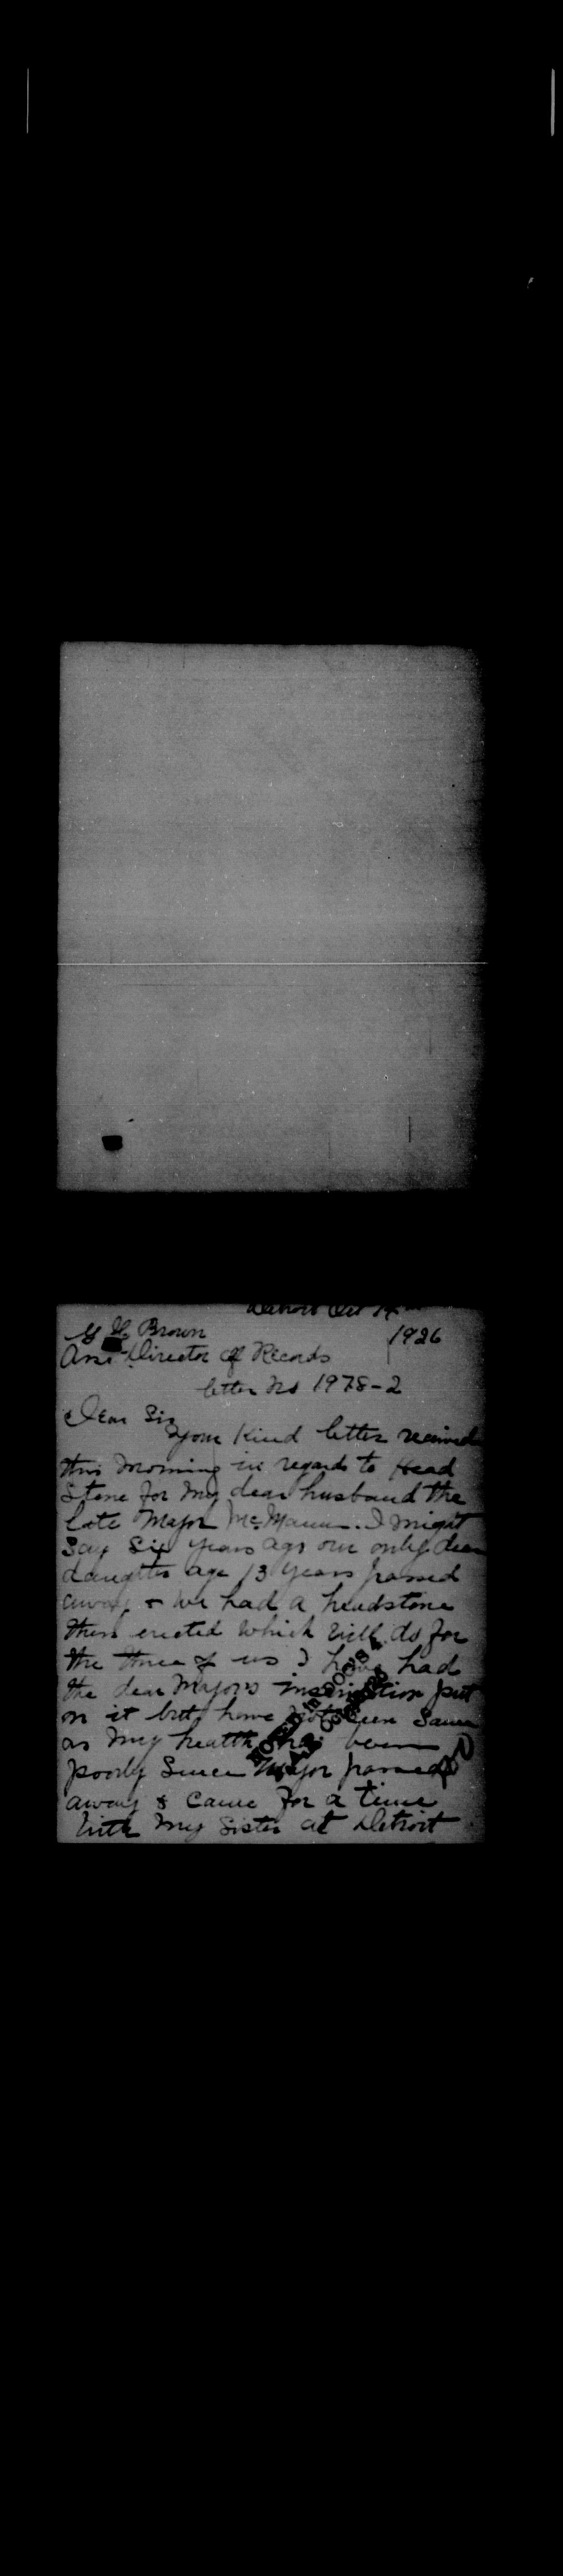 Detroit Oct 14th
G H Brown 1926
Director of Records
letter No 1978-2
Dear Sir
Your Kind letter received
this morning in regards to Head
Stone for my dear husband the
late Major McMann. I might
Say Six years ago our only dear
daughter age 13 years passed
away & we had a headstone
then erected which will do for
the three of us I have had
the dear Major's inscription put
on it but have not seen Same
as my health has been
poorly Since Major passed
away & Came For a time
with my Sister at Detroit